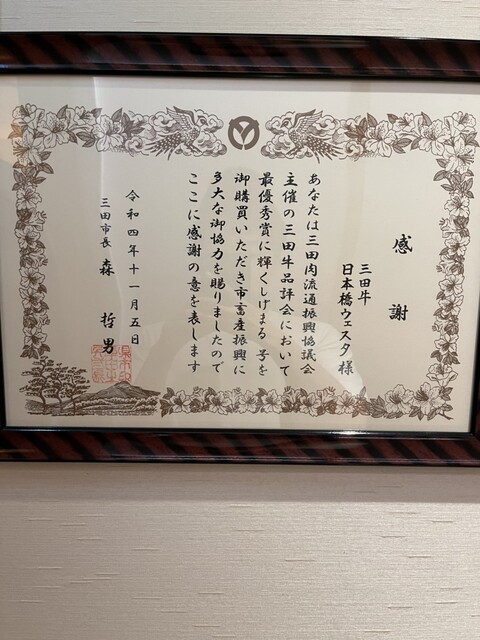 感謝
三田牛
日本橋ウェスタ様
あなたは三田肉流通振興協議会
主催の三田牛品評会において
最優秀賞に輝くしげまる号を
御購買いただき市畜産振興に
多大な御協力を賜りましたので
ここに感謝の意を表します
令和四年十一月五日
三田市長 森 哲男